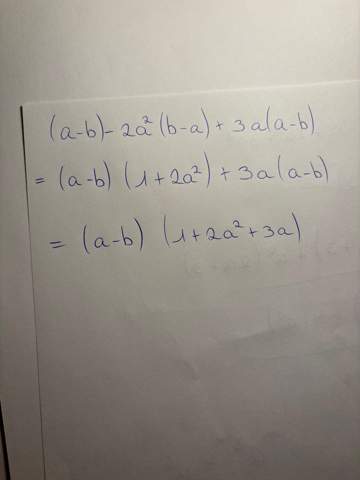 (a-b)-2a²(b-a)+3a(a-b)
=(a-b)(1+2a²)+3a(a-b)
=(a-b)(1+2a²+3a)